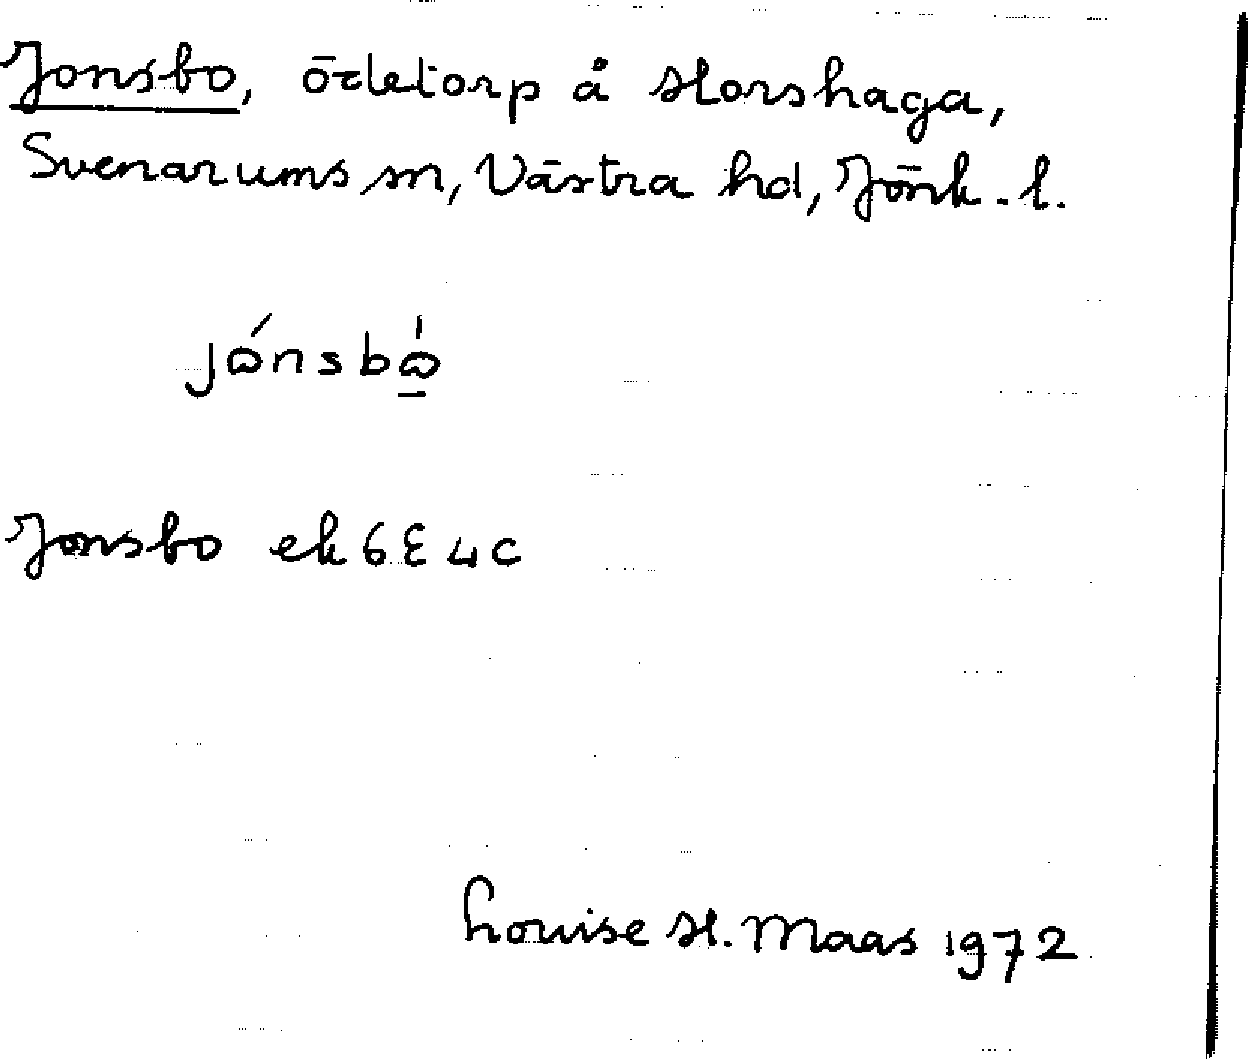 Jonsbo, ödetorp å Horshaga,
Svenarums sn, Västra hd, Jönk. l.
jónsbò̱
Jonsbo ek 6E 4c
Louise H. Maas 1972